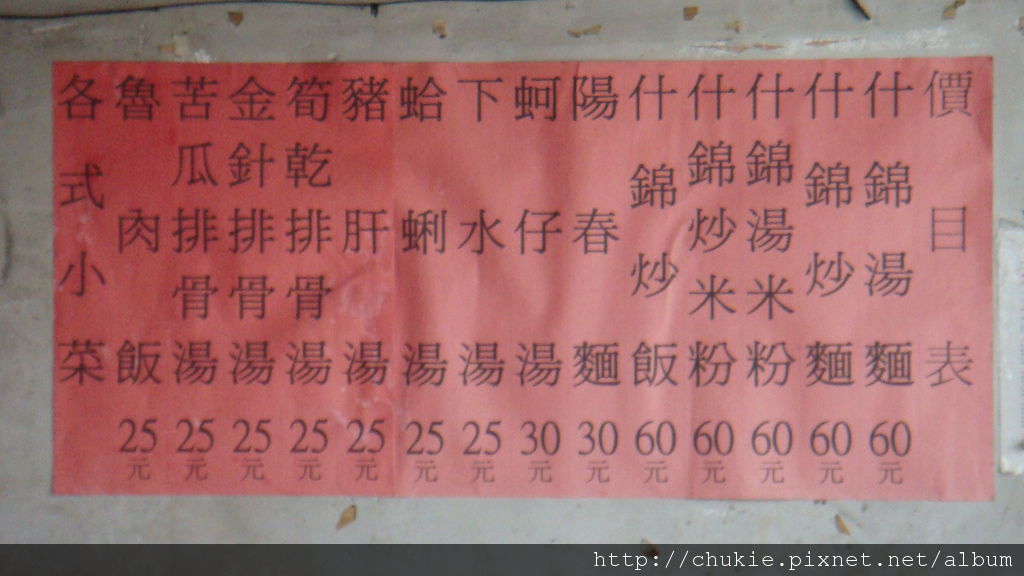 價目表
什錦湯麵60元
什錦炒麵60元
什錦湯米粉60元
什錦炒米粉60元
什錦炒飯60元
陽春麵30元
蚵仔湯30元
下水湯25元
蛤蜊湯25元
豬肝湯25元
筍乾排骨湯25元
金針排骨湯25元
苦瓜排骨湯25元
魯肉飯25元
各式小菜
http://chukie.pixnet.net/album